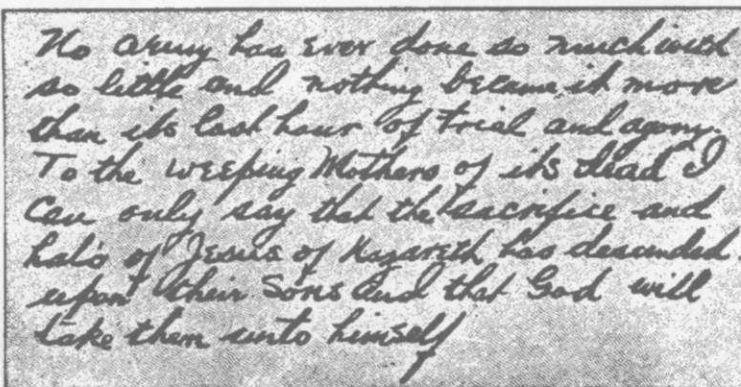 No army has ever done so much with
so little and nothing became it more
than its last hour of trial and agony.
To the weeping Mothers of its dead I
Can only say that the sacrifice and
halo of Jesus of Nazareth has descended
upon their Sons and that God will
take them unto himself